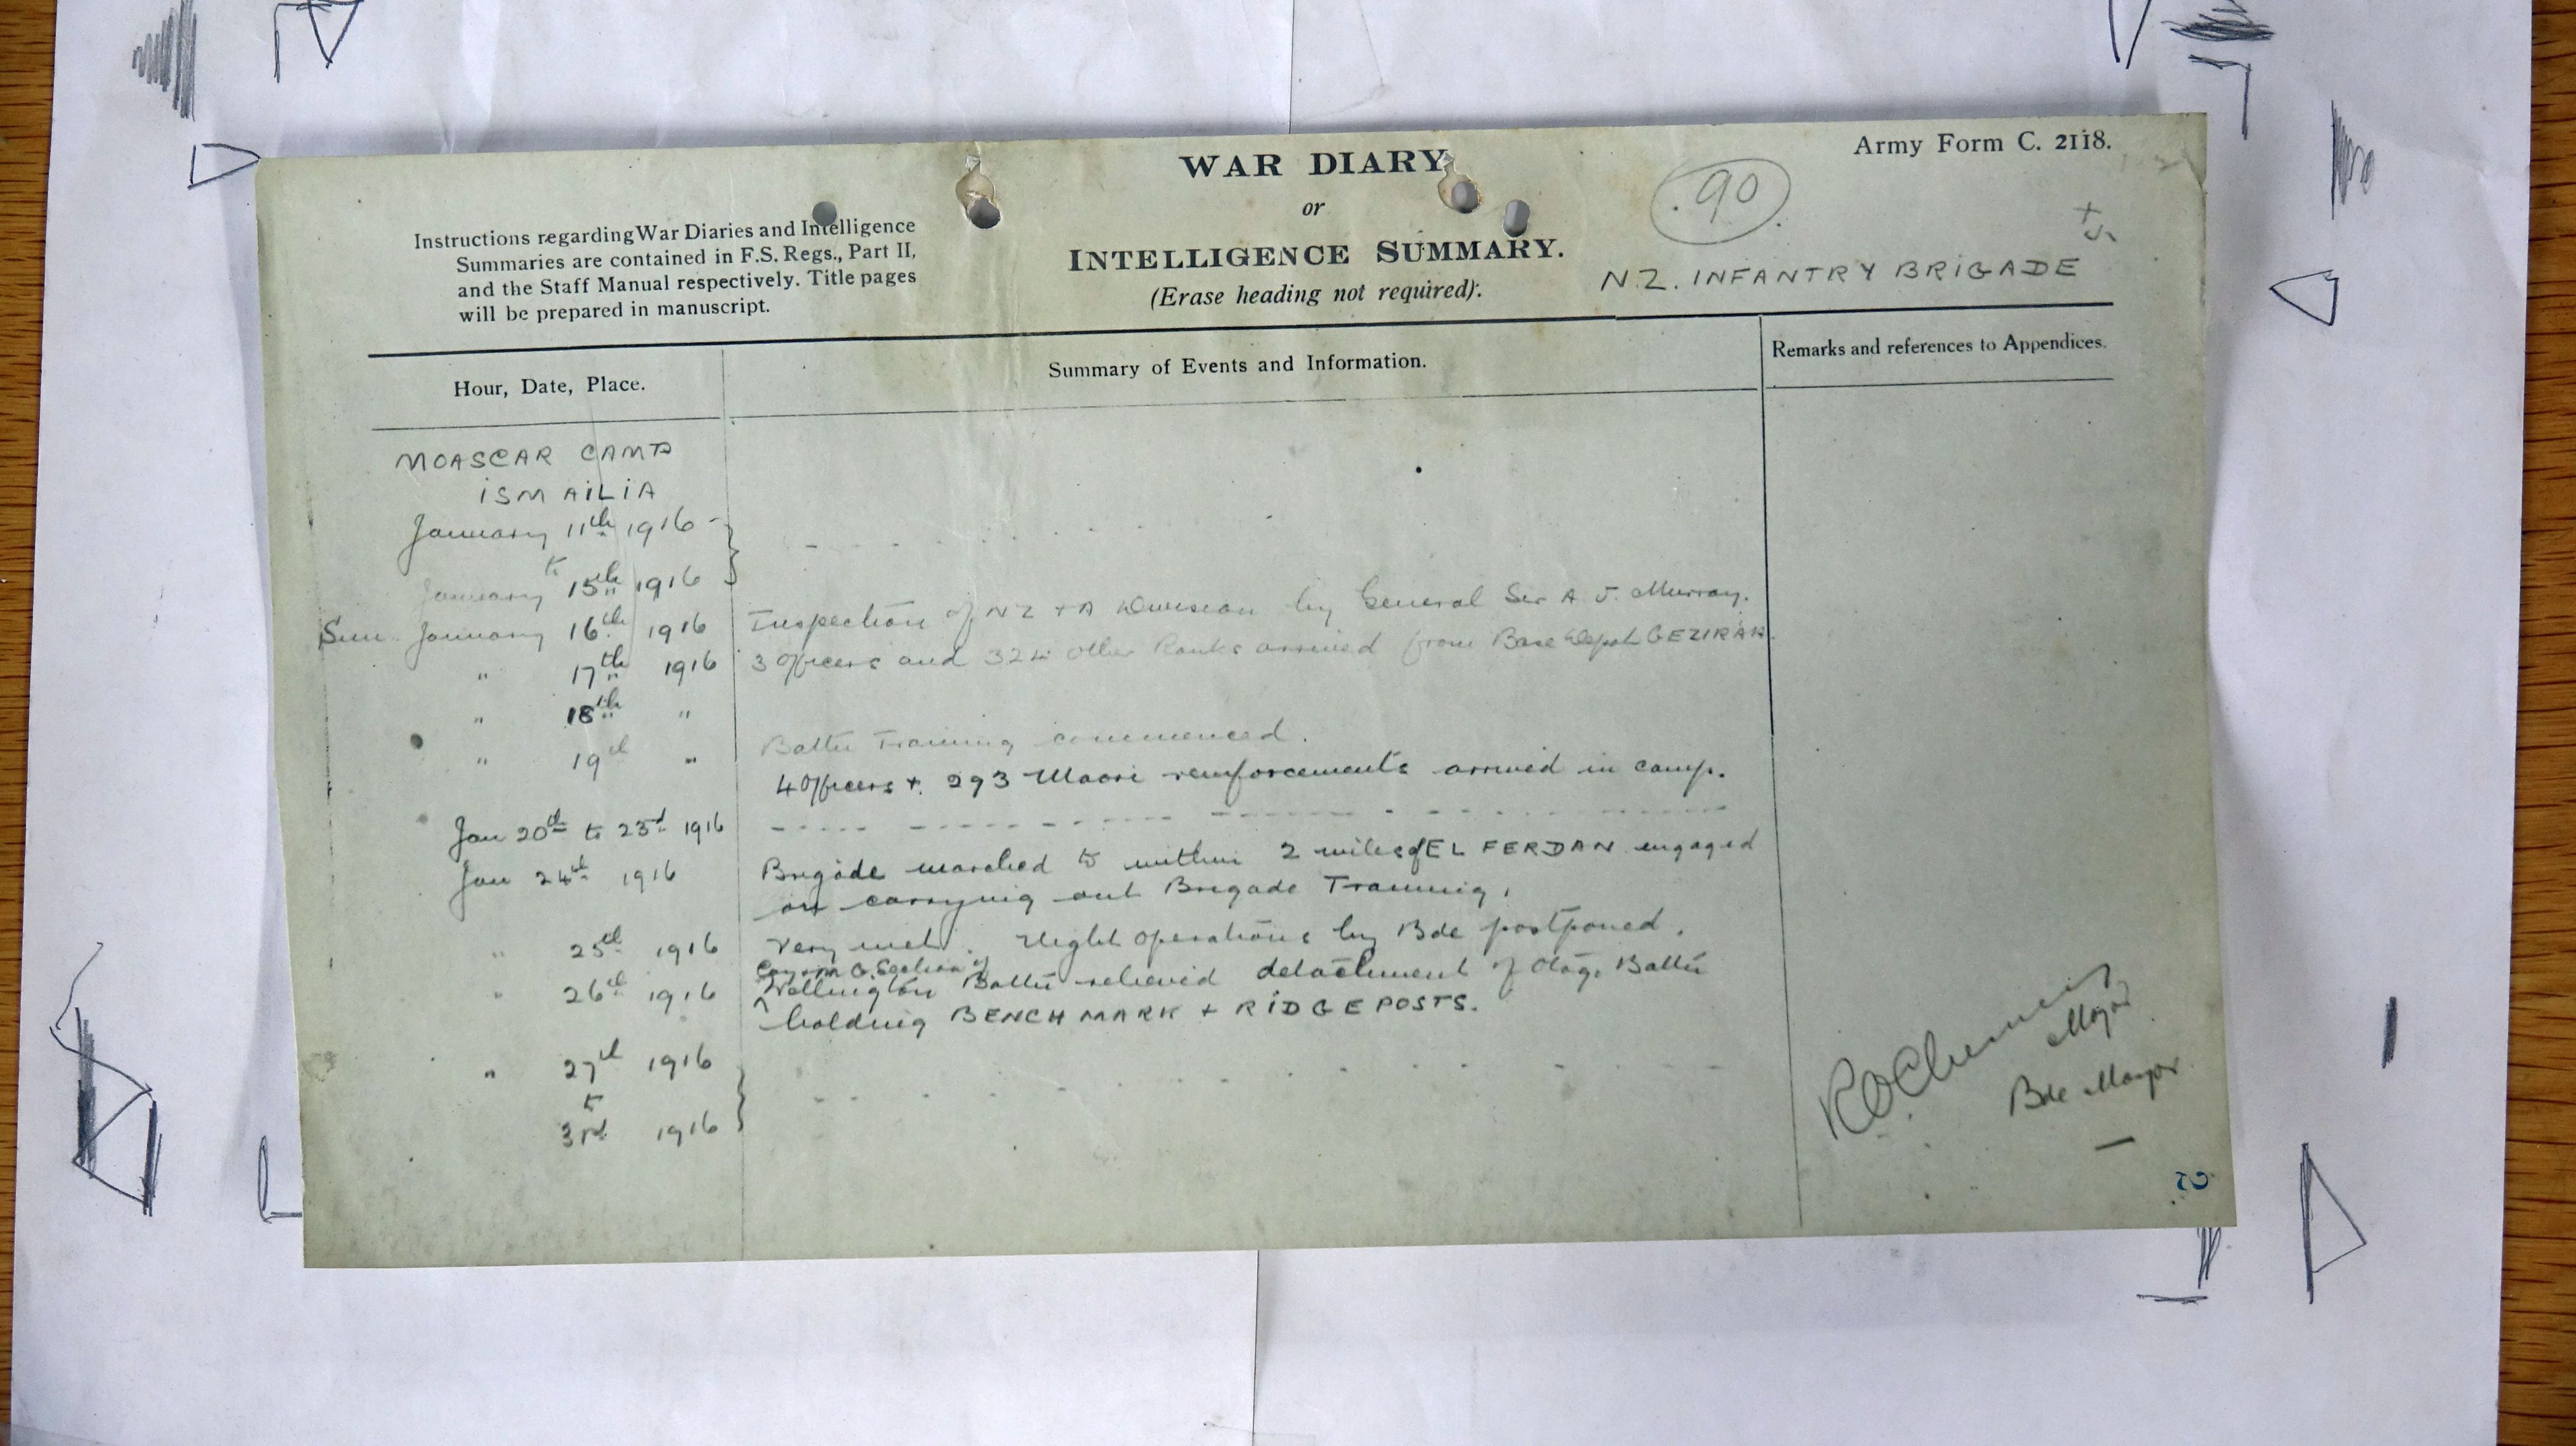 Army Form C. 2118.
WAR DIARY
or
INTELLIGENCE SUMMARY.
(Erase heading not required).
90
Instructions regarding War Diaries and Intelligence
Summaries are contained in F.S. Regs., Part II,
and the Staff Manual respectively. Title pages
will be prepared in manuscript.
N.Z. INFANTRY BRIGADE
Hour, Date, Place.
Summary of Events and Information.
Remarks and references to Appendices.
MOASCAR CAMP
ISMAILIA
January 11th 1916
to
January 15th 1916
Sun January 16th 1916 Inspection of NZ + A Division by General Sir A. J. Murray.
" 17th 1916 3 Officers and 324 other Ranks arrived from Base Depot GEZIRAH.
" 18th "
" 19th " Battn Training commenced.
4 Officers + 293 Maori reinforcements arrived in camp.
Jan 20th to 23rd 1916
Jan 24th 1916 Brigade marched to within 2 miles of EL FERDAN engaged
on carrying out Brigade Training.
" 25th 1916 Very wet. Night operations by Bde postponed.
" 26th 1916 Coy + M.G. Section of
Wellington Battn relieved detachment of Otago Battn
holding BENCH MARK + RIDGE POSTS.
" 27th 1916
to
3rd 1916
Major
Bde Major